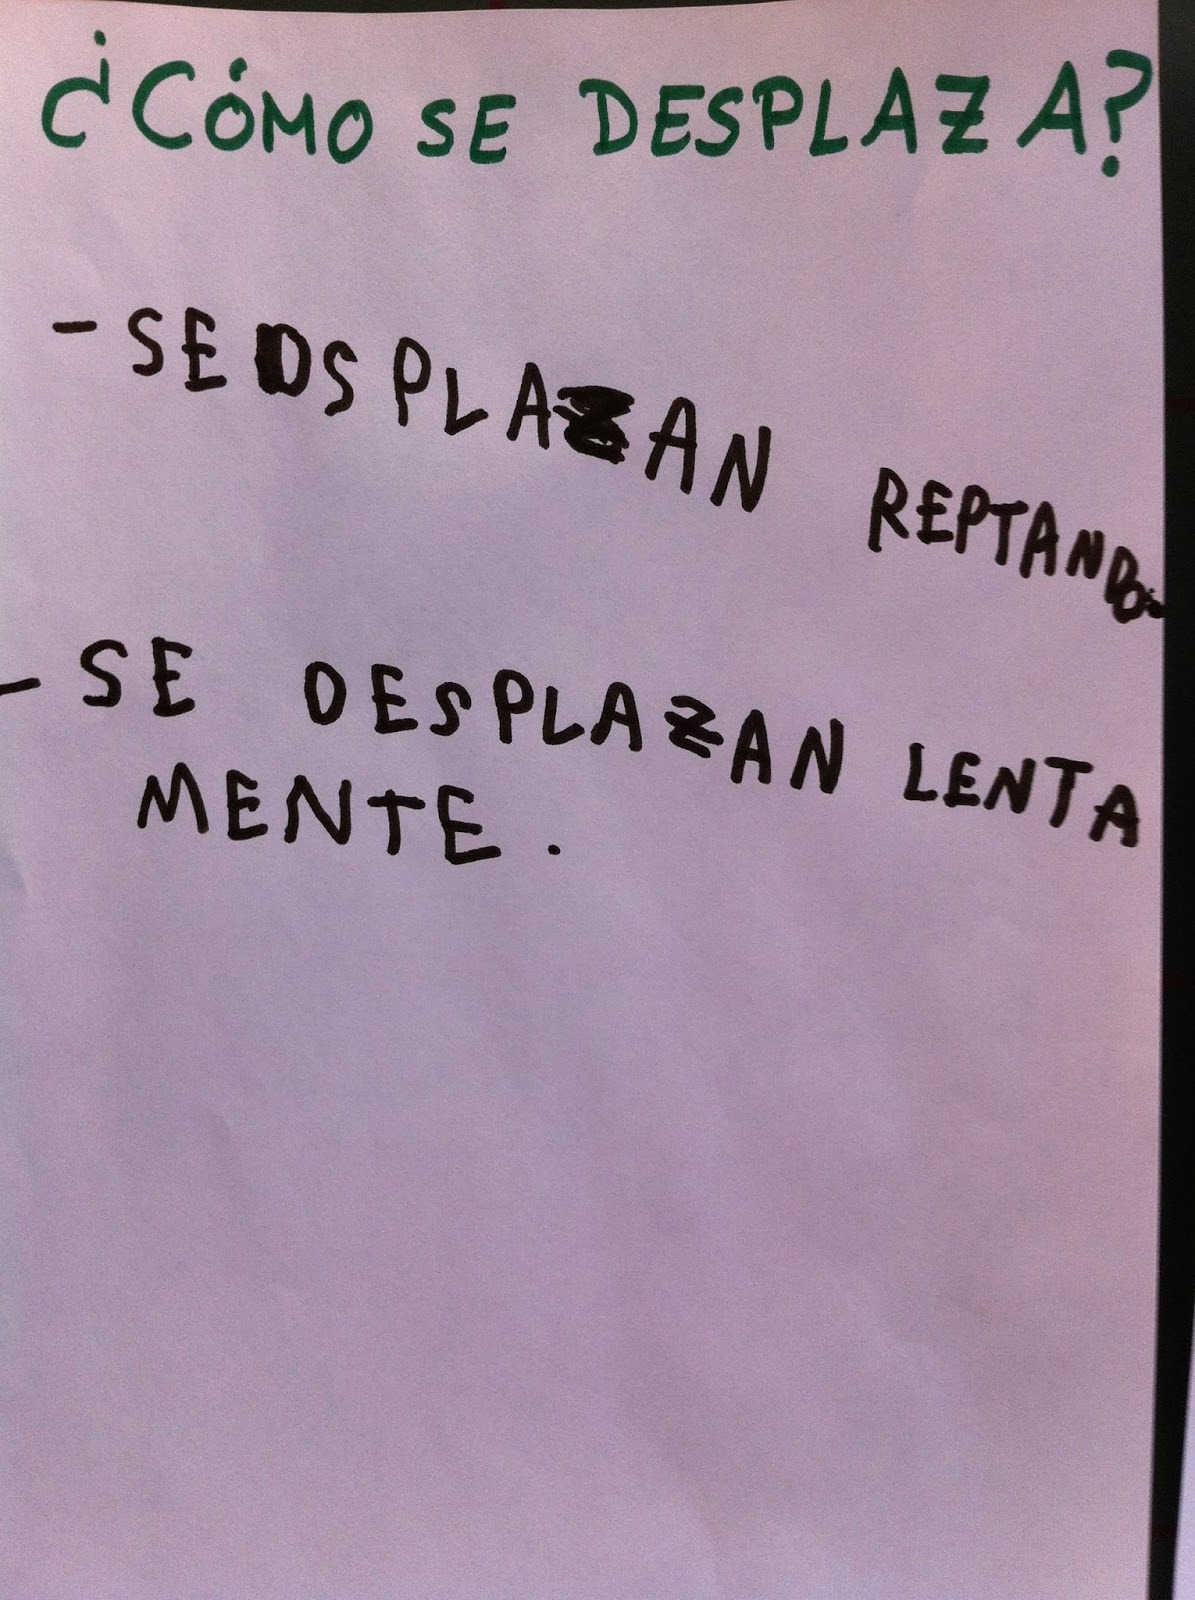 ¿CÓMO SE DESPLAZA?
- SE DSPLAZAN REPTANDO.
- SE DESPLAZAN LENTA
MENTE.